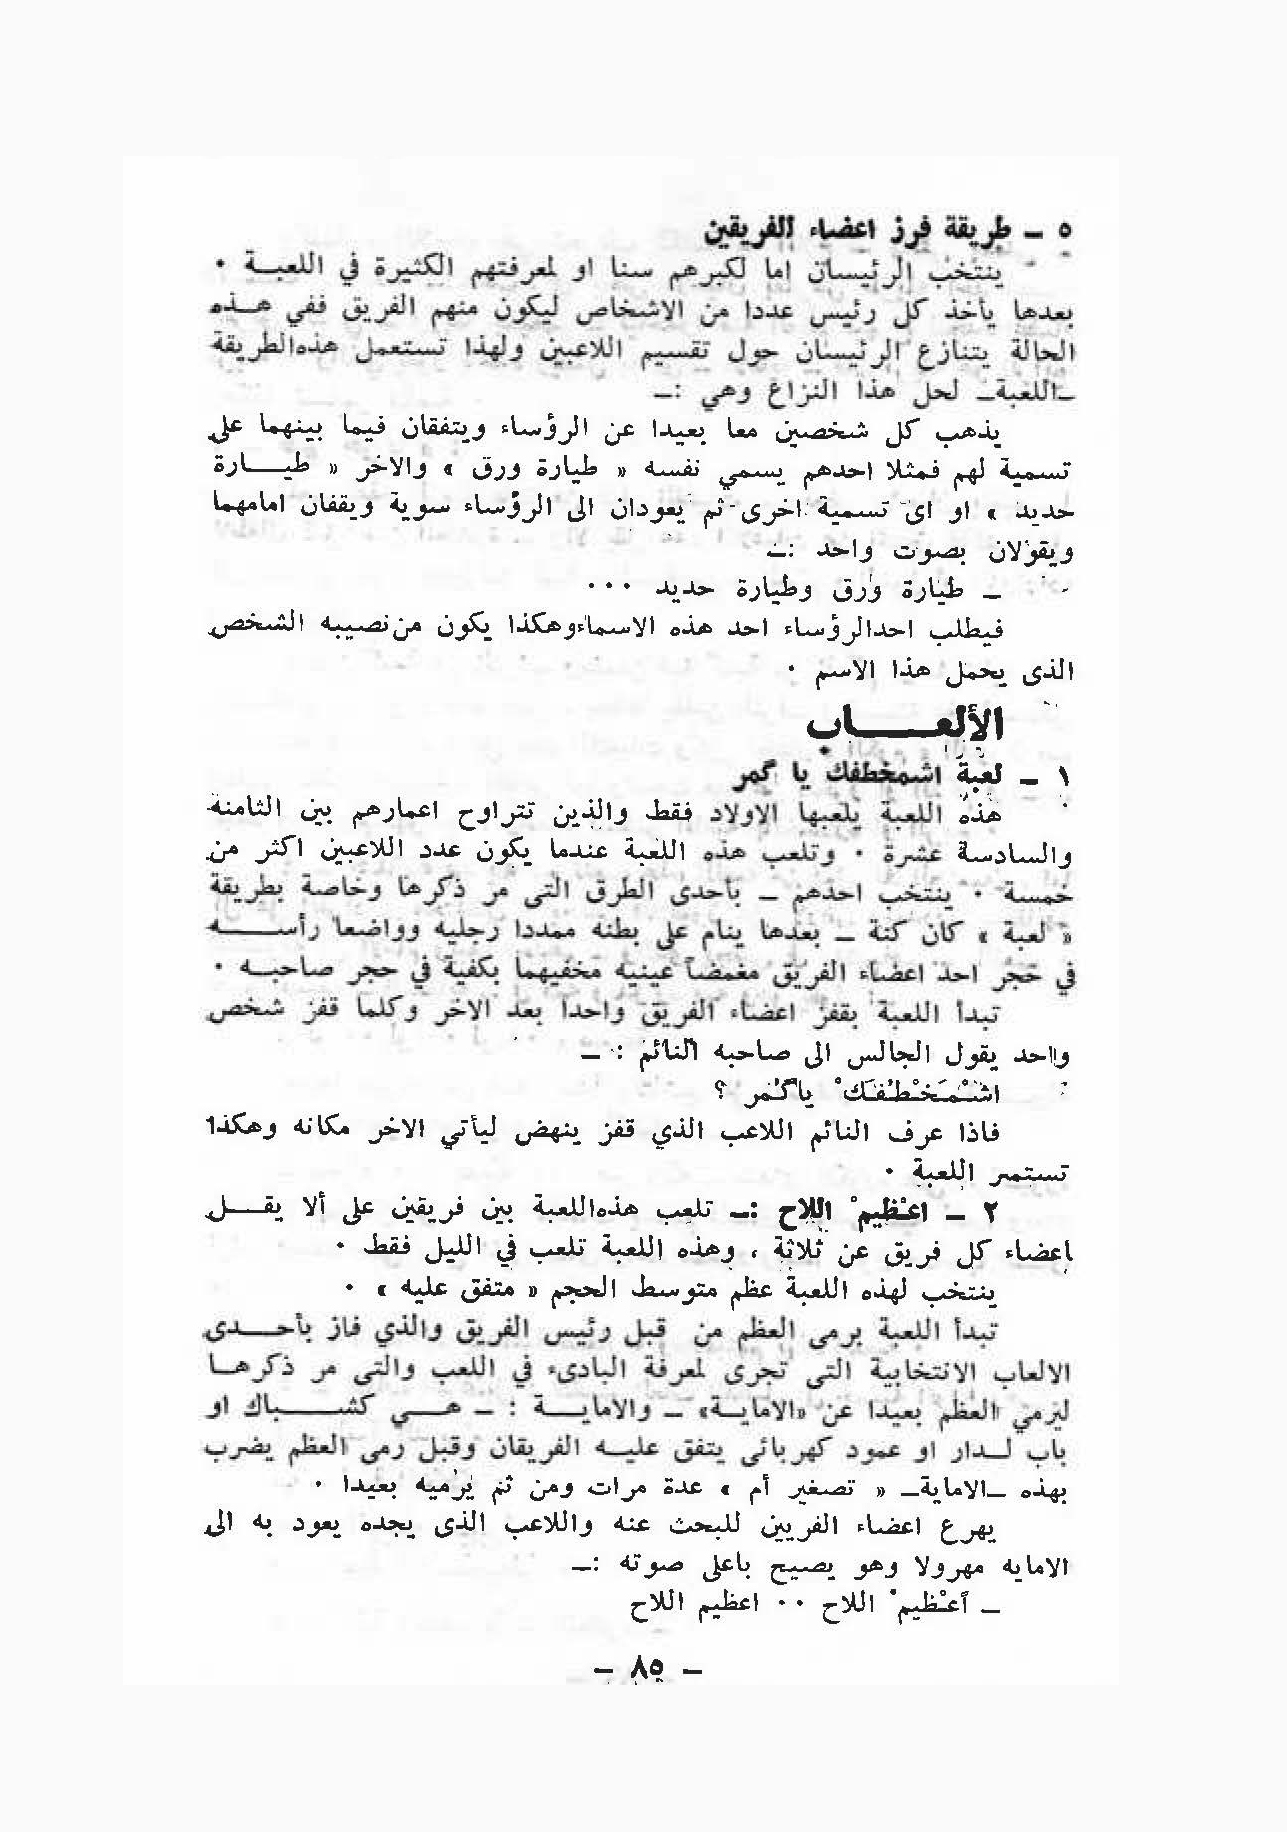 ٥ ــ طريقة فرز اعضاء الفريقين
ينتخب الرئيسان اما لكبرهم سنا او لمعرفتهم الكثيرة في اللعبـــة ٠
بعدها يأخذ كل رئيس عددا من الاشخاص ليكون منهم الفريق ففي هـــذه
الحالة يتنازع الرئيسان حول تقسيم اللاعبين ولهذا تستعمل هذهالطريقة
ــاللعبةــ لحل هذا النزاع وهي :ــ
يذهب كل شخصين معا بعيدا عن الرؤساء ويتفقان فيما بينهما على
تسمية لهم فمثلا احدهم يسمي نفسه « طيارة ورق » والاخر « طيــــارة
حديد » او اى تسمية اخرى ثم يعودان الى الرؤساء سوية ويقفان امامهما
ويقولان بصوت واحد :ــ
ــ طيارة ورق وطيارة حديد ٠٠٠
فيطلب احدالرؤساء احد هذه الاسماءوهكذا يكون من نصيبه الشخص
الذى يحمل هذا الاسم ٠
الألعـــــاب
١ ــ لعبة اشمخطفك يا گمر
هذه اللعبة يلعبها الاولاد فقط والذين تتراوح اعمارهم بين الثامنة
والسادسة عشرة ٠ وتلعب هذه اللعبة عندما يكون عدد اللاعبين اكثر من
خمسة ٠ ينتخب احدهم ــ بأحدى الطرق التى مر ذكرها وخاصة بطريقة
« لعبة » كان كنة ــ بعدها ينام على بطنه ممددا رجليه وواضعا رأســـــه
في حجر احد اعضاء الفريق مغمضا عينيه مخفيهما بكفية في حجر صاحبـــه ٠
تبدأ اللعبة بقفز اعضاء الفريق واحدا بعد الاخر وكلما قفز شخص
واحد يقول الجالس الى صاحبه النائم : ــ
اشْمَخْطُفَكْ ياگُمر ؟
فاذا عرف النائم اللاعب الذي قفز ينهض ليأتي الاخر مكانه وهكذا
تستمر اللعبة ٠
٢ ــ اعْظيمْ اللاح :ــ تلعب هذهاللعبة بين فريقين على ألا يقـــل
اعضاء كل فريق عن ثلاثة ، وهذه اللعبة تلعب في الليل فقط ٠
ينتخب لهذه اللعبة عظم متوسط الحجم « متفق عليه » ٠
تبدأ اللعبة برمى العظم من قبل رئيس الفريق والذي فاز بأحـــدى
الالعاب الانتخابية التى تجرى لمعرفة البادىء في اللعب والتى مر ذكرهـــا
ليرمي العظم بعيدا عن «الامايـــة» ــ والامايـــة : ــ هـــي كشـــــباك او
باب لـــدار او عمود كهربائى يتفق عليـــه الفريقان وقبل رمى العظم يضرب
بهذه ــالامايةــ « تصغير أم » عدة مرات ومن ثم يرميه بعيدا ٠
يهرع اعضاء الفريين للبحث عنه واللاعب الذى يجده يعود به الى
الامايه مهرولا وهو يصيح باعلى صوته :ــ
ــ أعْظيمْ اللاح ٠٠ اعظيم اللاح
ــ ٨٥ ــ